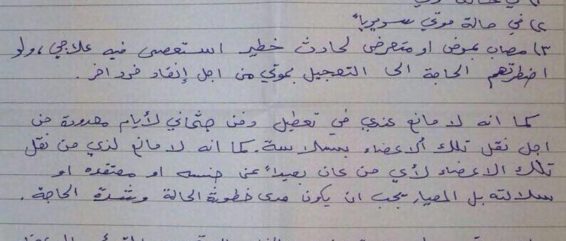 ٢) في حالة موتي سريرياً
٣) مصاب بمرض او متعرض لحادث خطير استعصى فيه علاجي، ولو
اضطرتهم الحاجة الى التعجيل بموتي من اجل إنقاذ فرد اخر.
كما انه لا مانع عندي في تعطيل دفن جثماني لأيام معدودة من
اجل نقل تلك الاعضاء بسلاسة. كما انه لا مانع لدي من نقل
تلك الاعضاء لأي من كان بعيداً عن جنسه او معتقده او
سلالته بل المعيار يجب ان يكون مدى خطورة الحالة وشدة الحاجة.